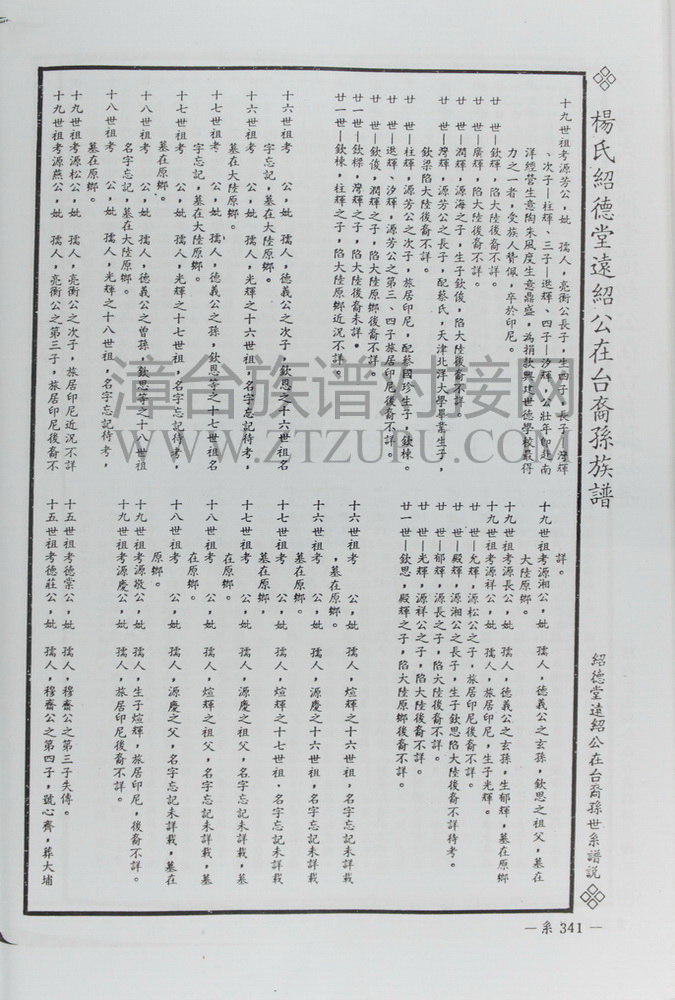 楊氏紹德堂遠紹公在台裔孫族譜
紹德堂遠紹公在台裔孫世系譜說
十九世祖考源芳公,妣　孺人,亮衡公長子,生四子,長子—灣輝
、次子—柱輝、三子—進輝、四子—汐輝,公壯年印赴南
洋經營生意陶朱風度生意鼎盛,為捐款興建世德學校最得
力之一者,受族人贊佩,卒於印尼。
廿　世—欽輝,陷大陸後裔不詳。
廿　世—廣輝,陷大陸後裔不詳。
廿　世—潤輝,源海之子,生子欽俊,陷大陸後裔不詳。
廿　世—灣輝,源芳公之長子,配蔡氏,天津北洋大學畢業生子,
欽梁陷大陸後裔不詳。
廿　世—柱輝,源芳公之次子,旅居印尼,配蔡國珍生子,欽棟。
廿　世—進輝、汐輝,源芳公之第三、四子旅居印尼後裔不詳。
廿一世—欽俊,潤輝之子,陷大陸原鄉後裔不詳。
廿一世—欽樑,灣輝之子,陷大陸後裔未詳。
廿一世—欽棟,柱輝之子,陷大陸原鄉近況不詳。
十六世祖考　公,妣　孺人,德義公之次子,欽恩之十六世祖名
字忘記,墓在大陸原鄉。
十六世祖考　公,妣　孺人,光輝之十六世祖,名字忘記待考,
墓在大陸原鄉。
十七世祖考　公,妣　孺人,德義公之孫,欽恩等之十七世祖名
字忘記,墓在大陸原鄉。
十七世祖考　公,妣　孺人,光輝之十七世祖,名字忘記待考,
墓在原鄉。
十八世祖考　公,妣　孺人,德義公之曾孫,欽恩等之十八世祖
名字忘記,墓在大陸原鄉。
十八世祖考　公,妣　孺人,光輝之十八世祖,名字忘記待考,
墓在原鄉。
十九世祖考源松公,妣　孺人,亮衡公之次子,旅居印尼近況不詳
十九世祖考源燕公,妣　孺人,亮衡公之第三子,旅居印尼後裔不
詳。
十九世祖考源湘公,妣　孺人,德義公之玄孫,欽思之祖父,墓在
大陸原鄉。
十九世祖考源長公,妣　孺人,德義公之玄孫,生郁輝,墓在原鄉
十九世祖考源祥公,妣　孺人,旅居印尼,生子光輝。
廿　世—允輝,源松公之子,旅居印尼後裔不詳。
廿　世—殿輝,源湘公之長子,生子欽思陷大陸後裔不詳待考。
廿　世—郁輝,源長之子,陷大陸後裔不詳。
廿　世—光輝,源祥公之子,陷大陸後裔不詳。
廿一世—欽思,殿輝之子,陷大陸原鄉後裔不詳。
十六世祖考　公,妣　孺人,煊輝之十六世祖,名字忘記未詳載
,墓在原鄉。
十六世祖考　公,妣　孺人,源慶之十六世祖,名字忘記未詳載
墓在原鄉。
十七世祖考　公,妣　孺人,煊輝之十七世祖,名字忘記未詳載
墓在原鄉。
十七世祖考　公,妣　孺人,源慶之祖父,名字忘記未詳載,墓
在原鄉。
十八世祖考　公,妣　孺人,煊輝之祖父,名字忘記未詳載,墓
在原鄉。
十八世祖考　公,妣　孺人,源慶之父,名字忘記未詳載,墓在
原鄉。
十九世祖考源敬公,妣　孺人,生子煊輝,旅居印尼,後裔不詳。
十九世祖考源慶公,妣　孺人,旅居印尼後裔不詳。
十五世祖考德崇公,妣　孺人,穆齋公之第三子失傳。
十五世祖考德莊公,妣　孺人,穆齋公之第四子,號心齊,葬大埔
— 系 341 —
漳台族谱对接网
WWW.ZTZUPU.COM